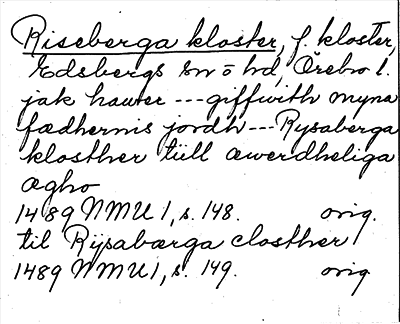 Riseberga kloster, f. kloster,
Edsbergs sn o hd, Örebro l.
jak hauer --- giffwith myna
fædhernis jordh --- Rysaberga
klosther tiill æwerdheliga
ægho
1489 NMU 1, s. 148. orig.
til Rijsabærga closther
1489 NMU 1, s. 149. orig